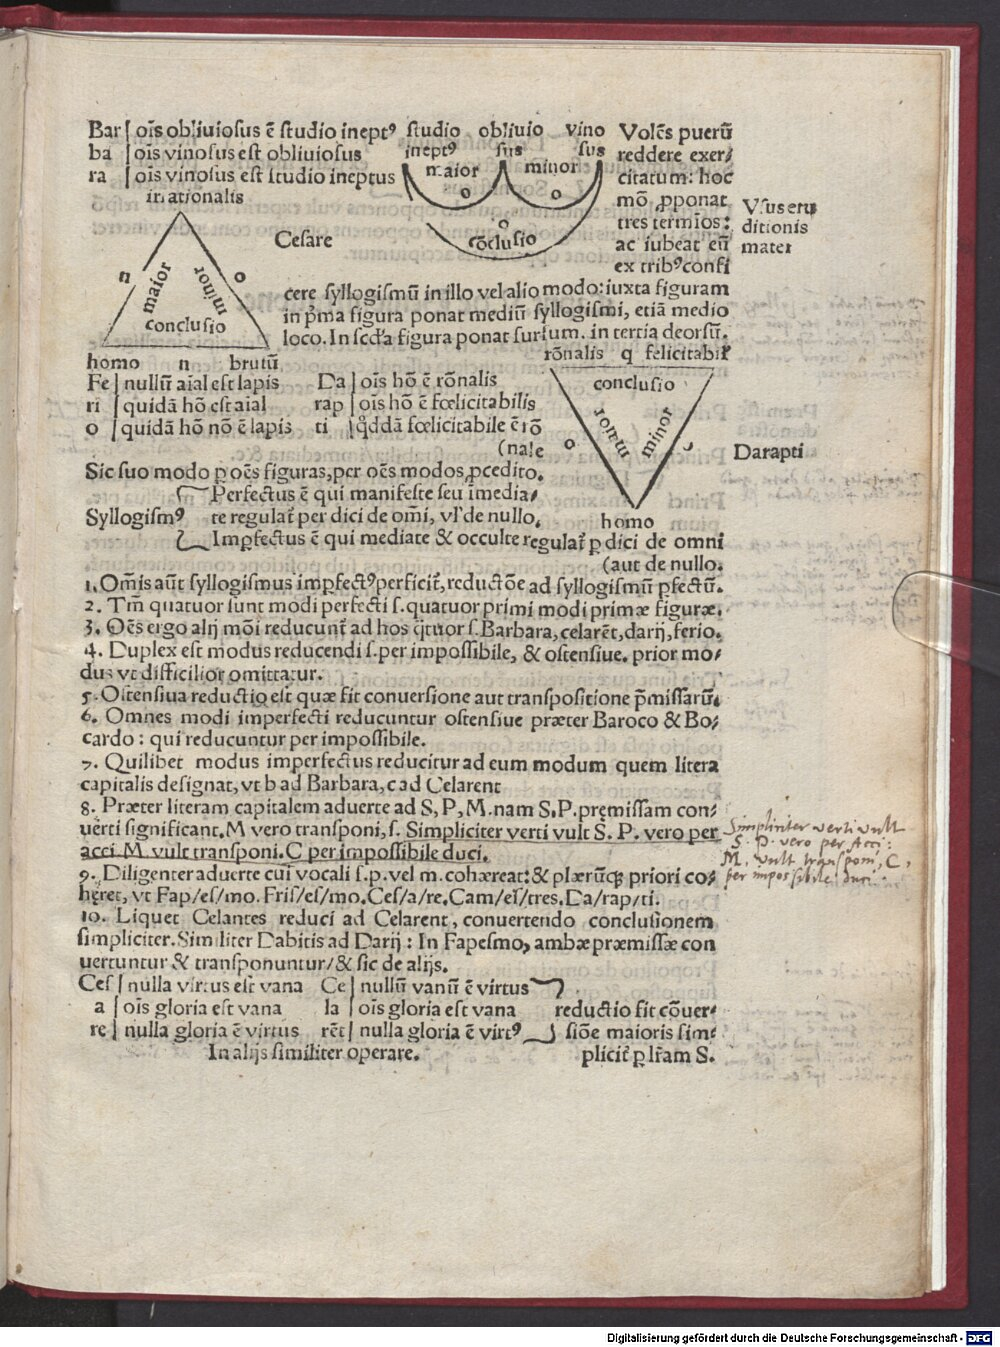 Barſ oīs obliuioſus ē ſtudio ineptꝰ ſtudio obliuio vino Volēs puerū
ba ſ oīs vinoſus eſt obliuioſus ineptꝰ ſus ſus reddere exer/
ra ſ oīs vinoſus eſt ſtudio ineptus maior minor citatum: hoc
irrationalis o o mō ꝓponat
Vſus eru
tres termīos:
ditionis
Ceſare o
cōcluſio ac iubeat eū
mater
n maior minor o ex tribꝰ confi
cere ſyllogiſmū in illo vel alio modo: iuxta figuram
in p̄ma figura ponat mediū ſyllogiſmi, etiā medio
concluſio
loco. In ſcd̄a figura ponat ſurſum. in tertia deorſū.
homo n brutū
rōnalis q felicitabiƚ
Fe ſ nullū aīal eſt lapis Da ſ oīs hō ē rōnalis
concluſio
ri ſ quidā hō eſt aīal rap ſ oīs hō ē fœlicitabilis
o ſ quidā hō nō ē lapis ti ſ q̄ddā fœlicitabile ē rō
(nale
o minor
Darapti
Sic ſuo modo ꝑ oēs figuras, per oēs modos ꝓcedito.
Perfectus ē qui manifeſte ſeu īmedia/
Syllogiſmꝰ te regulat̄ per dici de omī, vƚ de nullo.
homo
Imꝑfectus ē qui mediate & occulte regulat̄ ꝑ dici de omni
(aut de nullo.
1. Om̄is aūt ſyllogiſmus imꝑfectꝰ perficit̄, reductōe ad ſyllogiſmū ꝑfectū.
2. Tm̄ quatuor ſunt modi perfecti ſ. quatuor primi modi primæ figuræ.
3. Oēs ergo alij mōi reducunt̄ ad hos q̄tuor ſ. Barbara, celarēt, darij, ferio.
4. Duplex eſt modus reducendi ſ. per impoſſibile, & oſtenſiue. prior mo/
dus vt difficilior omittatur.
5. Oſtenſiua reductio eſt quæ fit conuerſione aut tranſpoſitione p̄miſſarū.
6. Omnes modi imperfecti reducuntur oſtenſiue præter Baroco & Bo/
cardo: qui reducuntur per impoſſibile.
7. Quilibet modus imperfectus reducitur ad eum modum quem litera
capitalis deſignat, vt b ad Barbara, c ad Celarent
8. Præter literam capitalem aduerte ad S, P, M. nam S. P. premiſſam con/
uerti ſignificant. M vero tranſponi, ſ. Simpliciter verti vult S. P. vero per
acci. M. vult tranſponi. C per impoſſibile duci.
Simpliciter verti vult
S. P. vero per Acci:
M. vult tranſponi, C,
per impoſſibile duci.
9. Diligenter aduerte cui vocali ſ. p. vel m. cohæreat: & plærūq̨ priori co/
heret, vt Fap/eſ/mo. Friſ/eſ/mo. Ceſ/a/re. Cam/eſ/tres. Da/rap/ti.
10. Liquet Celantes reduci ad Celarent, conuertendo concluſionem
ſimpliciter. Similiter Dabitis ad Darij: In Fapeſmo, ambæ præmiſſæ con
uertuntur & tranſponuntur/ & ſic de alijs.
Ceſ ſ nulla virtus eſt vana Ce ſ nullū vanū ē virtus
a ſ oīs gloria eſt vana la ſ oīs gloria eſt vana reductio fit cōuer/
re ſ nulla gloria ē virtus rēt ſ nulla gloria ē virtꝰ ſiōe maioris ſim/
In alijs ſimiliter operare. plicit̄ ꝑ lr̄am S.
Digitalisierung gefördert durch die Deutsche Forschungsgemeinschaft - DFG